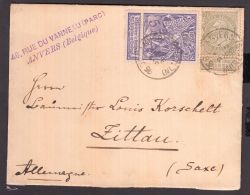 46, RUE DU VANNEAU (PARC)
ANVERS (Belgique)
Herrn
Jean Louis Korschelt
Zittau
(Saxe)
Allemagne.